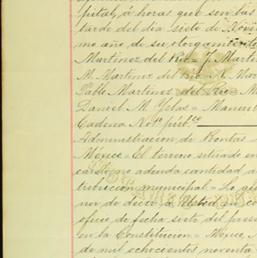 pital, á horas que son dias
tarde del dia siete de Novi
mo año de su otorgamiento
Martinez del Rio = J. Marti
M. Martinez del Rio =
Pablo Martinez del Rio = M
Daniel M. Yslas = Manuel
Cadena N.º púb.co
Administracion de Rentas
México = El terreno situado en
no adeuda cantidad a
tribucion municipal = Lo
no de decir á Usted
oficio de fecha siete del pres
en la Constitucion = Méjico
de mil ochocientos noventa